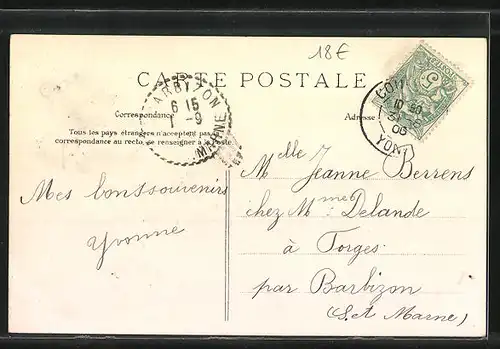 18€
CARTE POSTALE
Correspondance
Adresse
Tous les pays étrangers n'acceptent pas
correspondance au recto, se renseigner à la Poste
BARBIZON
6 15
1 -9
MARNE
5
10 50
31
06
YON
Mes bons souvenirs
Yvonne
Melle Jeanne Berrens
chez Mme Delande
à Forges
par Barbizon
(S. et Marne)